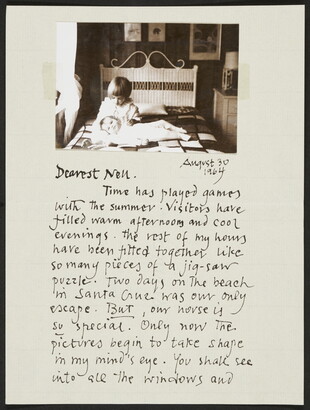 August 30
1964
Dearest Nell.
Time has played games
with the summer. Visitors have
filled warm afternoons and cool
evenings. the rest of my hours
have been fitted together like
so many pieces of a jig-saw
puzzle. Two days on the beach
in Santa Cruz was our only
escape. But, our house is
so special. Only now the
pictures begin to take shape
in my mind's eye. You shall see
into all the windows and